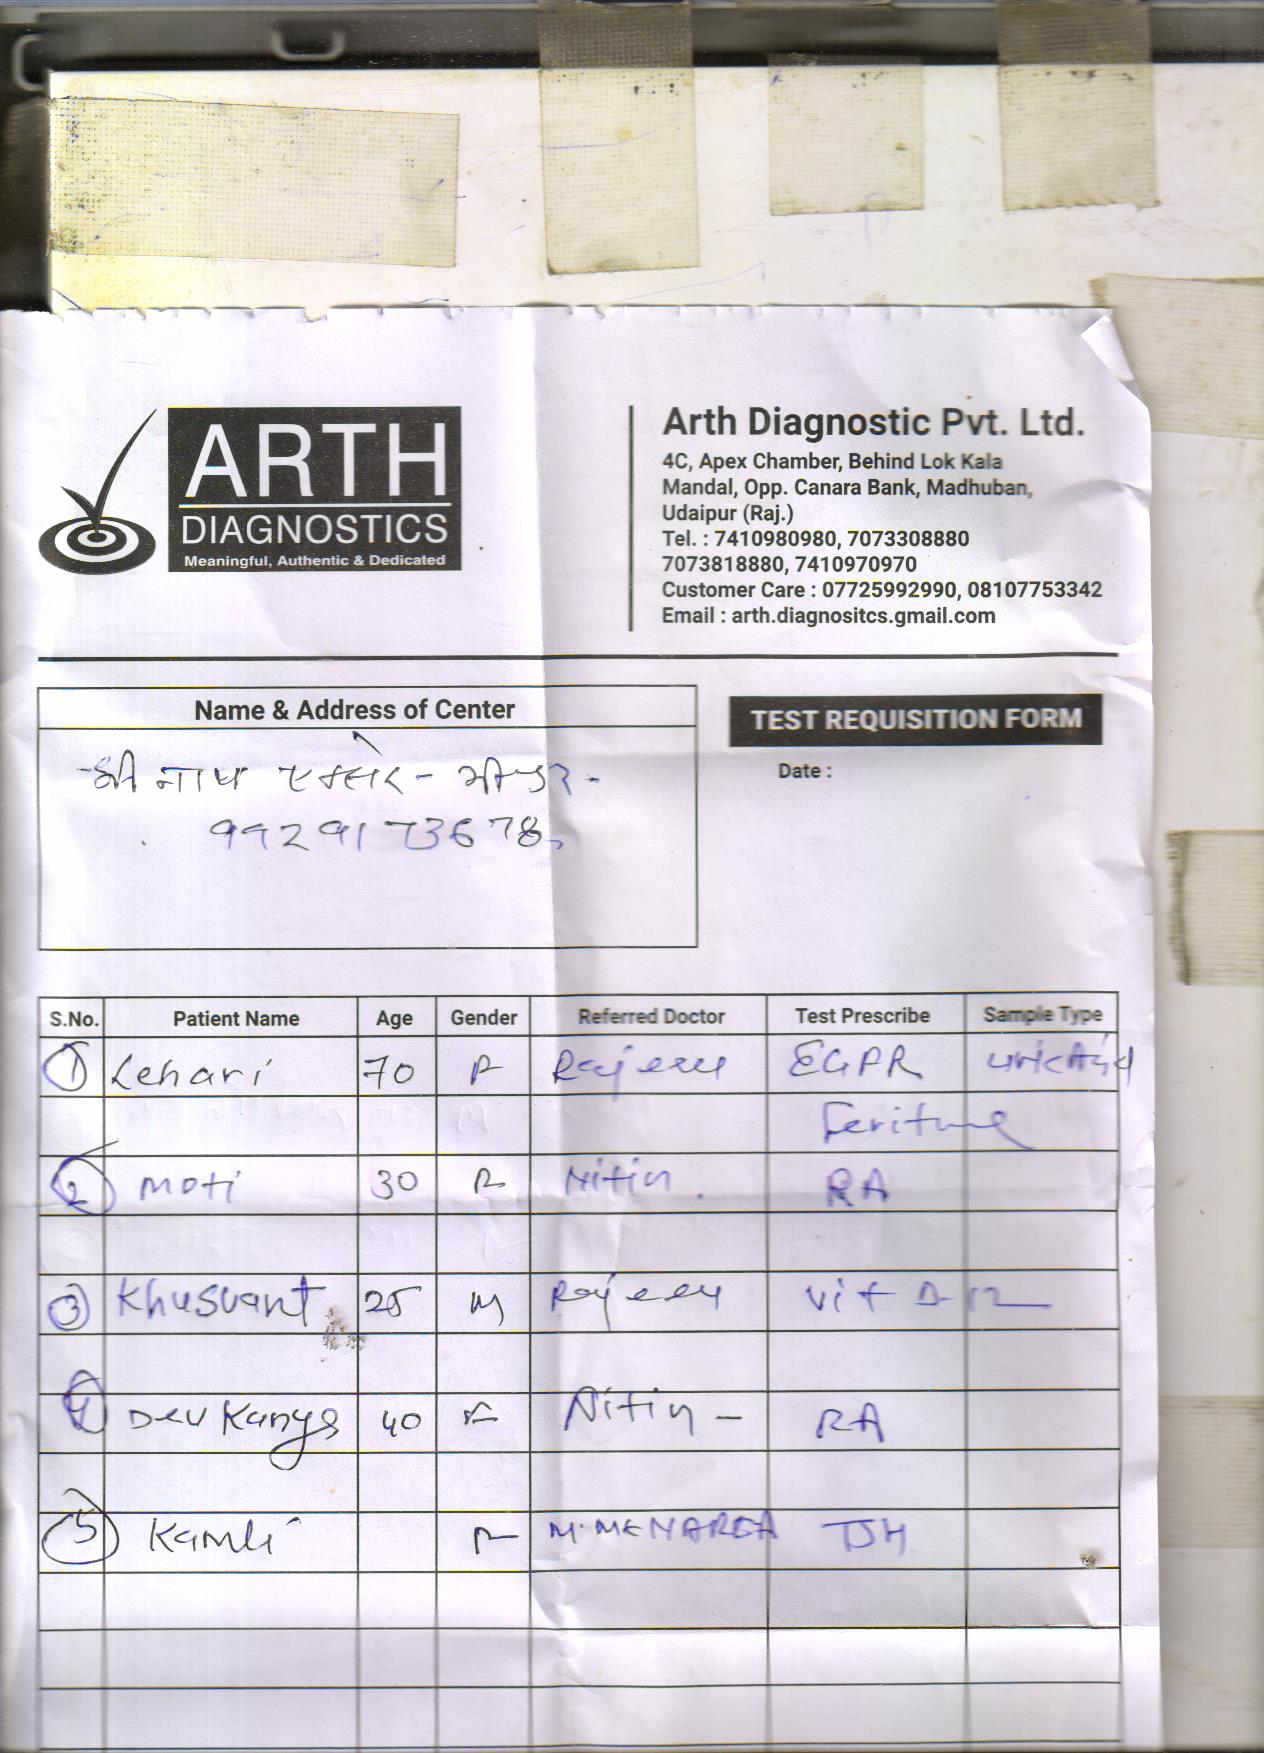 ARTH
DIAGNOSTICS
Meaningful, Authentic & Dedicated
Arth Diagnostic Pvt. Ltd.
4C, Apex Chamber, Behind Lok Kala
Mandal, Opp. Canara Bank, Madhuban,
Udaipur (Raj.)
Tel. : 7410980980, 7073308880
7073818880, 7410970970
Customer Care : 07725992990, 08107753342
Email : arth.diagnositcs.gmail.com
Name & Address of Center
श्री नाथ
9929173678
TEST REQUISITION FORM
Date :
S.No. Patient Name Age Gender Referred Doctor Test Prescribe Sample Type
1 Lehari 70 F Rajeev EGPR uric Acid
Feritine
2 Moti 30 F Nitin. RA
3 Khusvant 25 M Rajeev Vit D-12
4 Dev Kanya 40 F Nitin - RA
5 Kamli F M. MENAREA TSH